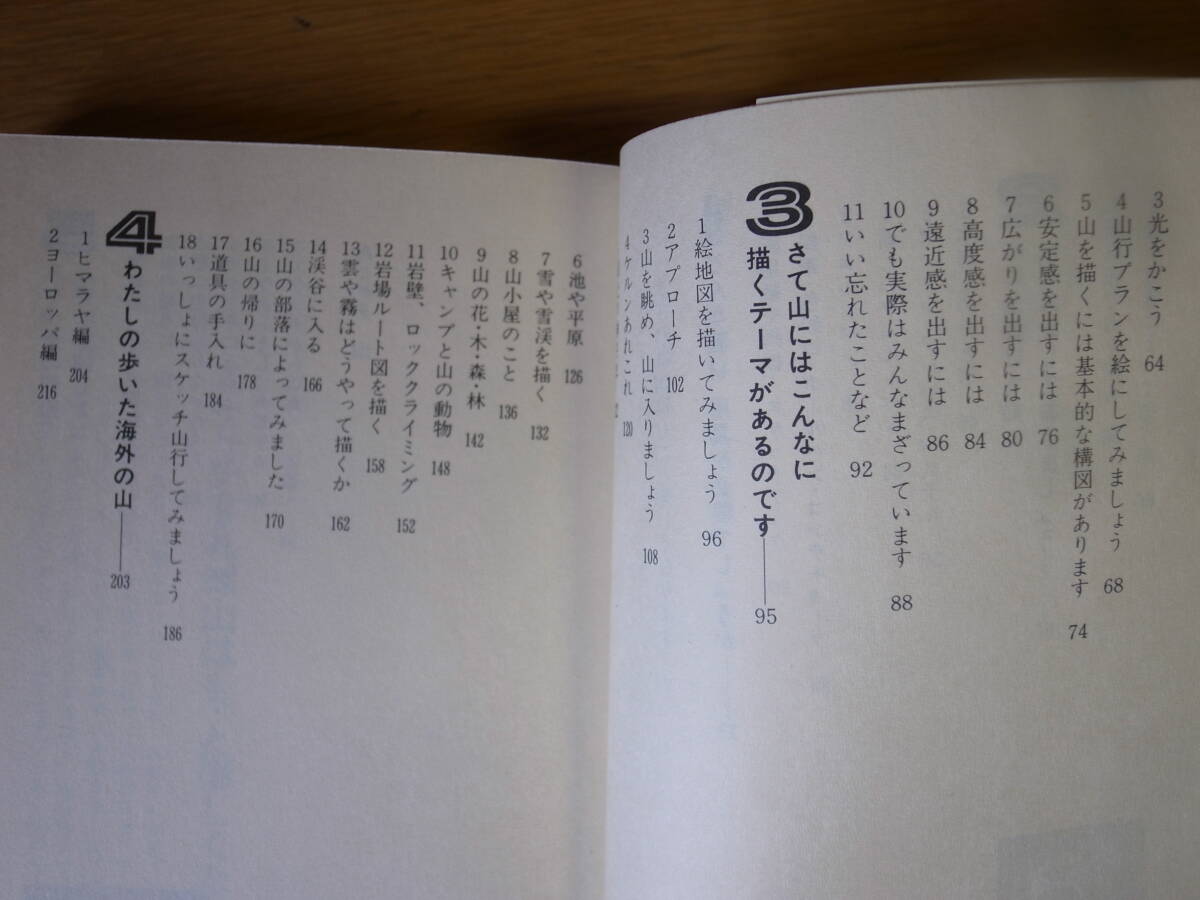 3 光をかこう 64
4 山行プランを絵にしてみましょう 68
5 山を描くには基本的な構図があります 74
6 安定感を出すには 76
7 広がりを出すには 80
8 高度感を出すには 84
9 遠近感を出すには 86
10 でも実際はみんなまざっています 88
11 いい忘れたことなど 92
3 さて山にはこんなに
描くテーマがあるのです——95
1 絵地図を描いてみましょう 96
2 アプローチ 102
3 山を眺め、山に入りましょう 108
4 ケルンあれこれ 120
6 池や平原 126
7 雪や雪渓を描く 132
8 山小屋のこと 136
9 山の花・木・森・林 142
10 キャンプと山の動物 148
11 岩壁、ロッククライミング 152
12 岩場ルート図を描く 158
13 雲や霧はどうやって描くか 162
14 渓谷に入る 166
15 山の部落によってみました 170
16 山の帰りに 178
17 道具の手入れ 184
18 いっしょにスケッチ山行してみましょう 186
4 わたしの歩いた海外の山——203
1 ヒマラヤ編 204
2 ヨーロッパ編 216